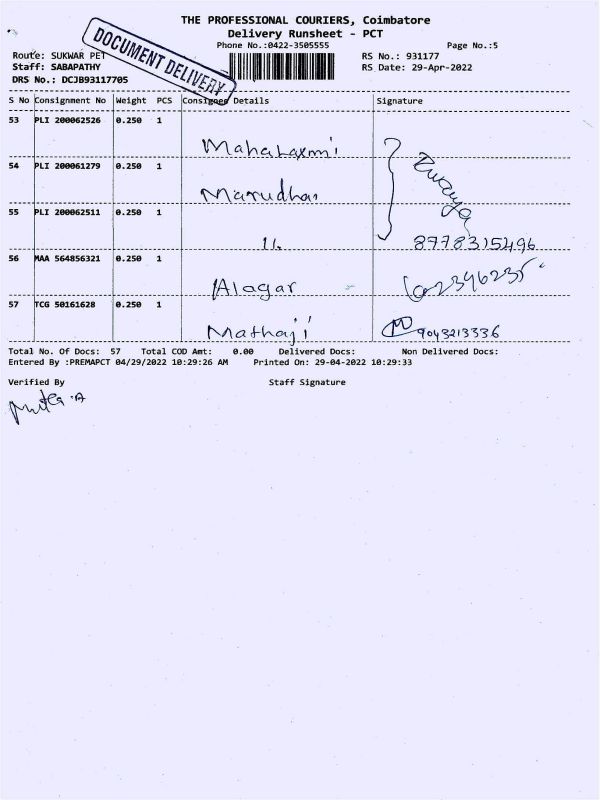 THE PROFESSIONAL COURIERS, Coimbatore
Delivery Runsheet - PCT
Phone No.:0422-3505555 Page No.:5
Route: SUKWAR PET RS No.: 931177
Staff: SABAPATHY RS Date: 29-Apr-2022
DRS No.: DCJB93117705
DOCUMENT DELIVERY
S No Consignment No Weight PCS Consignee Details Signature
53 PLI 200062526 0.250 1
Mahalaxmi
54 PLI 200061279 0.250 1
Marudhar
55 PLI 200062511 0.250 1
11. 8778315496
56 MAA 564856321 0.250 1
Alagar
57 TCG 50161628 0.250 1
Mathaji 9043213336
Total No. Of Docs: 57 Total COD Amt: 0.00 Delivered Docs: Non Delivered Docs:
Entered By :PREMAPCT 04/29/2022 10:29:26 AM Printed On: 29-04-2022 10:29:33
Verified By Staff Signature